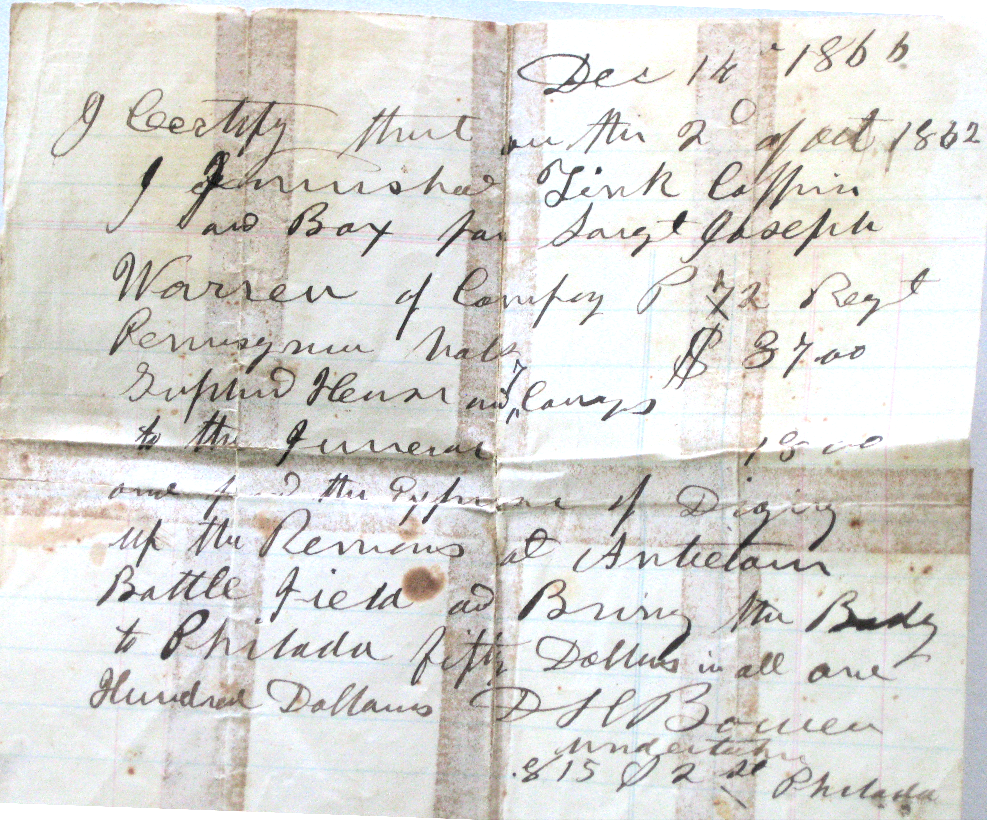 Dec 14" 1866
I Certify that on the 2d of oct 1862
I Furnished Zink Coffin
and Box for Sargt Joseph
Warren of Compy P 72 Regt
Pensyna Vols $ 37.00
Suplid Hearse and Carrages
to the Funeral 13 00
and paid the Expense of Diging
up the Remans at Antietam
Battle Field and Bring the Body
to Philada fifty Dollars in all one
Hundred Dollars D H Bowen
undertaker
815 S 2 st Philada